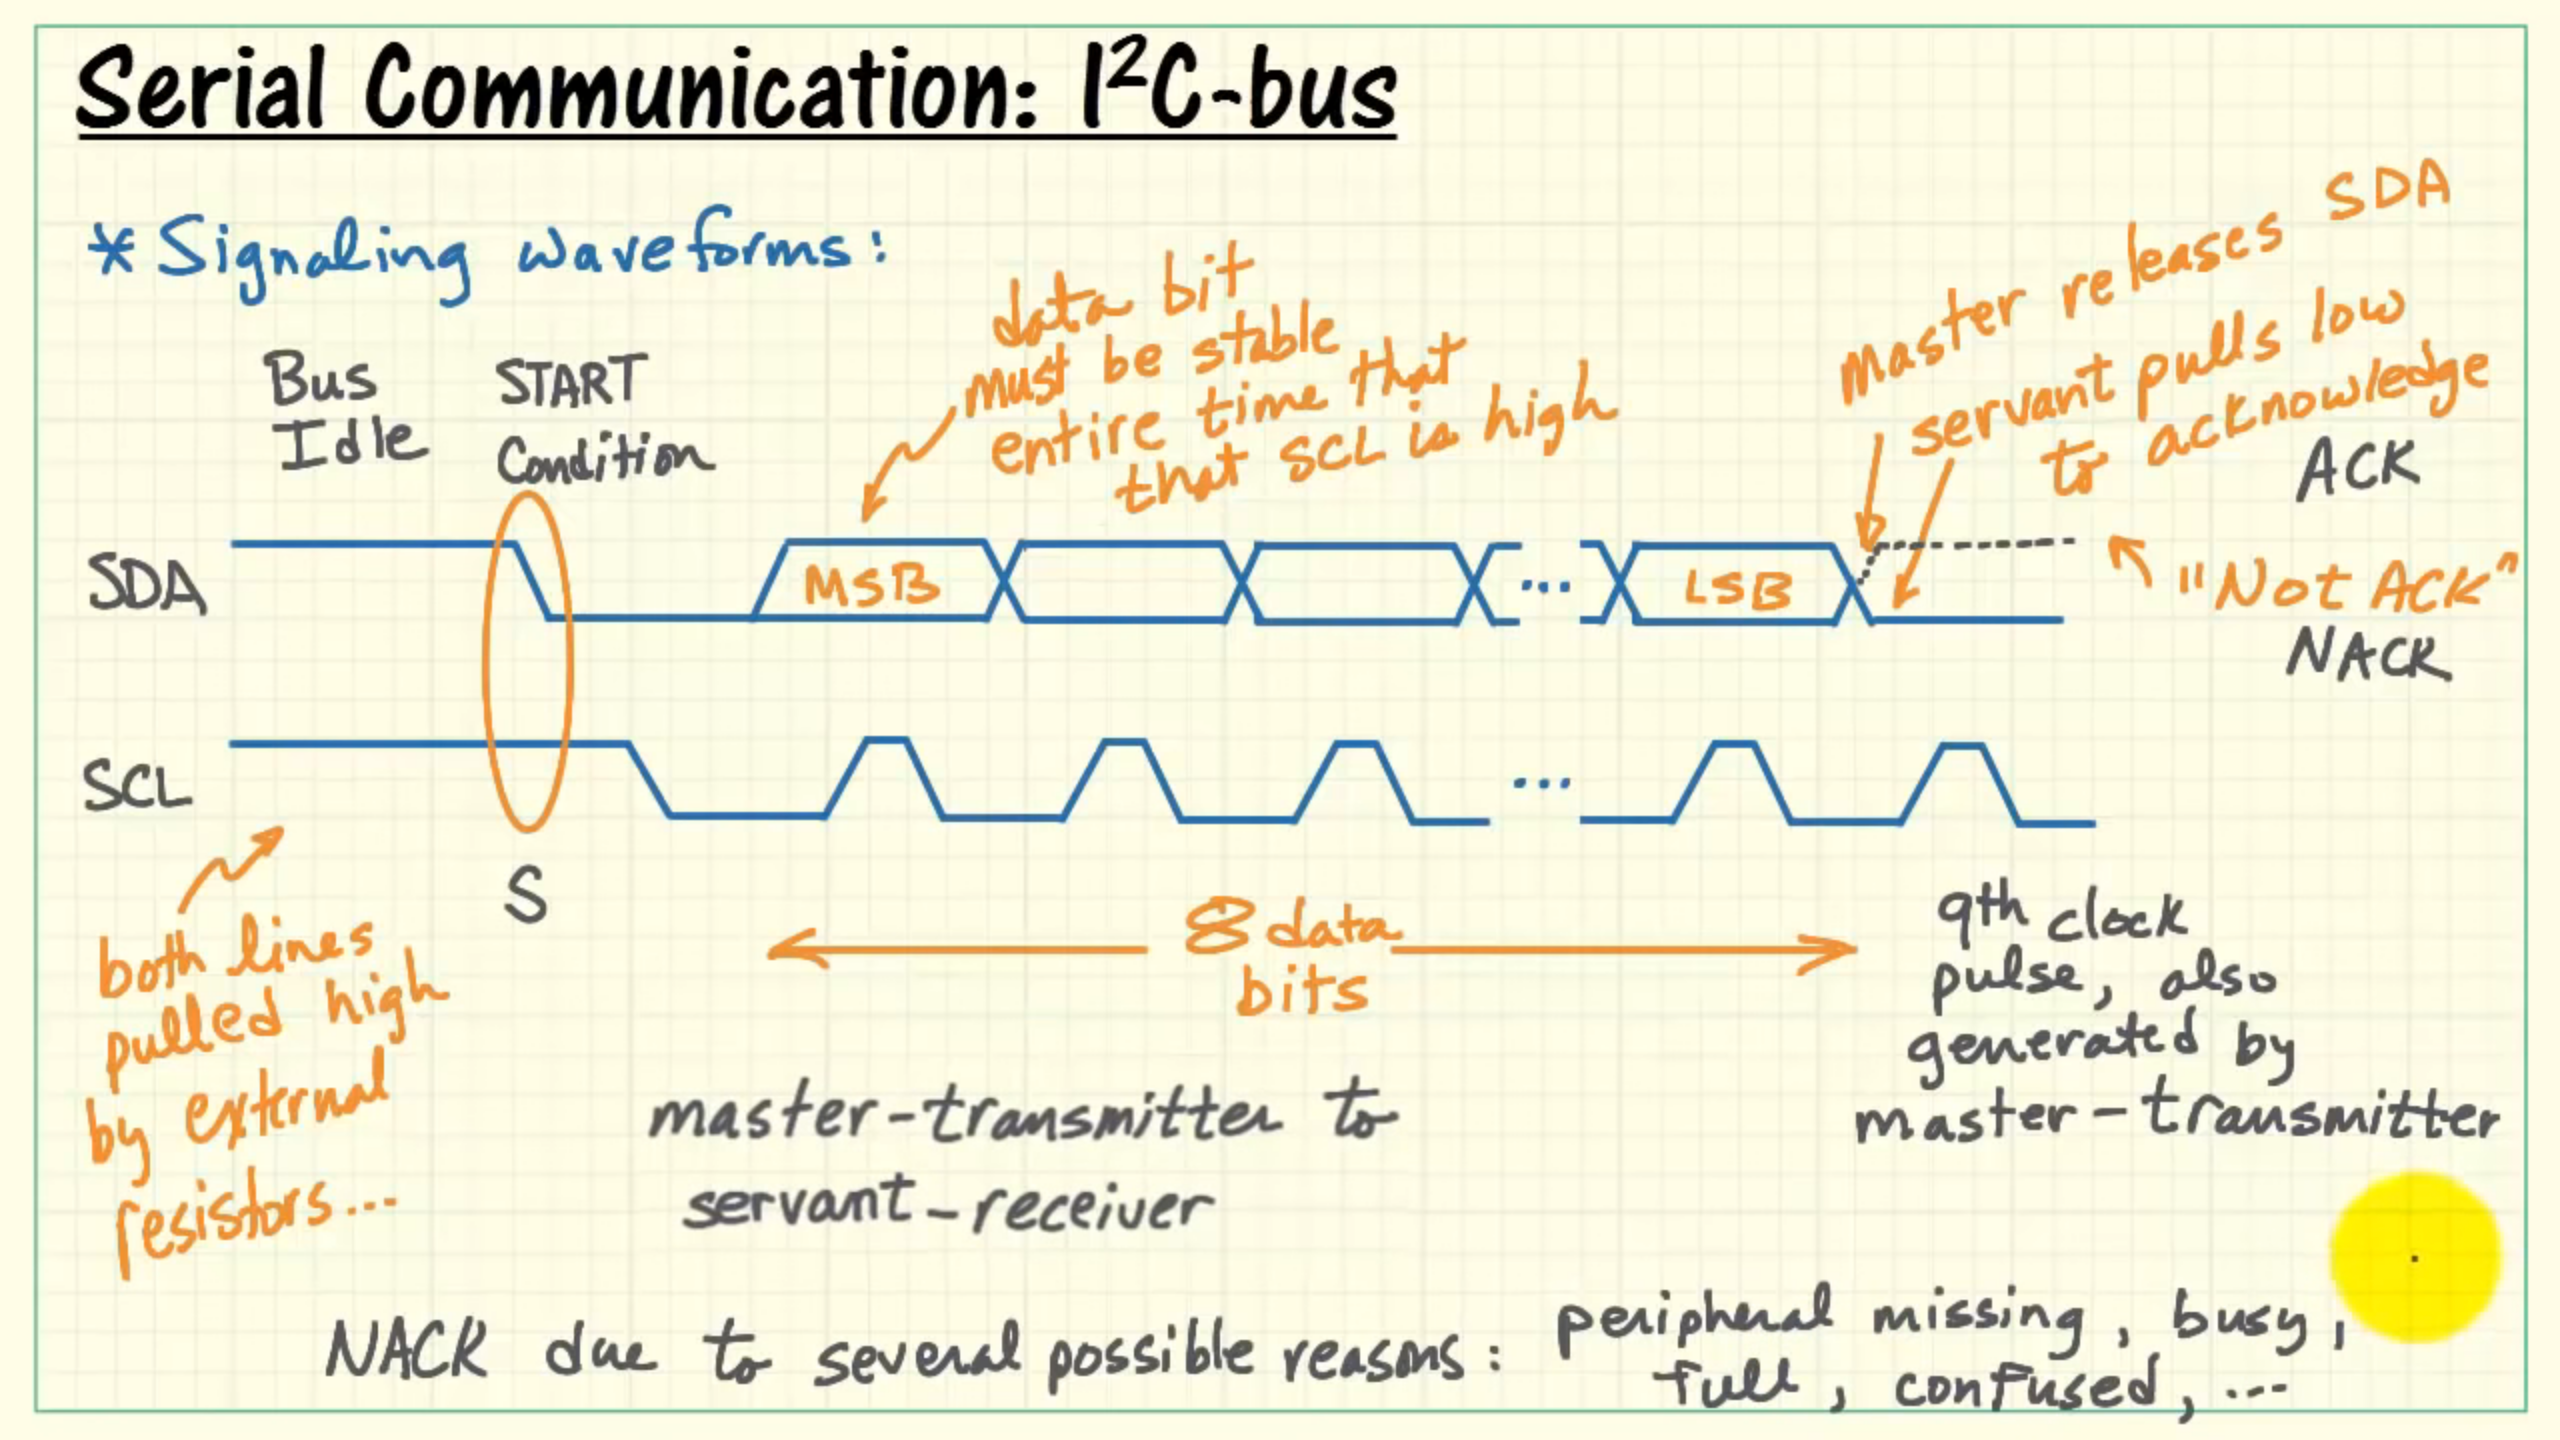 Serial Communication: I²C-bus
* Signaling waveforms:
Bus
Idle
START
Condition
data bit
must be stable
entire time that
that SCL is high
master releases SDA
servant pulls low
to acknowledge
ACK
SDA
MSB
...
LSB
"Not ACK"
NACK
SCL
...
S
both lines
pulled high
by external
resistors...
8 data
bits
9th clock
pulse, also
generated by
master-transmitter
master-transmitter to
servant-receiver
NACK due to several possible reasons: peripheral missing, busy,
full, confused, ...